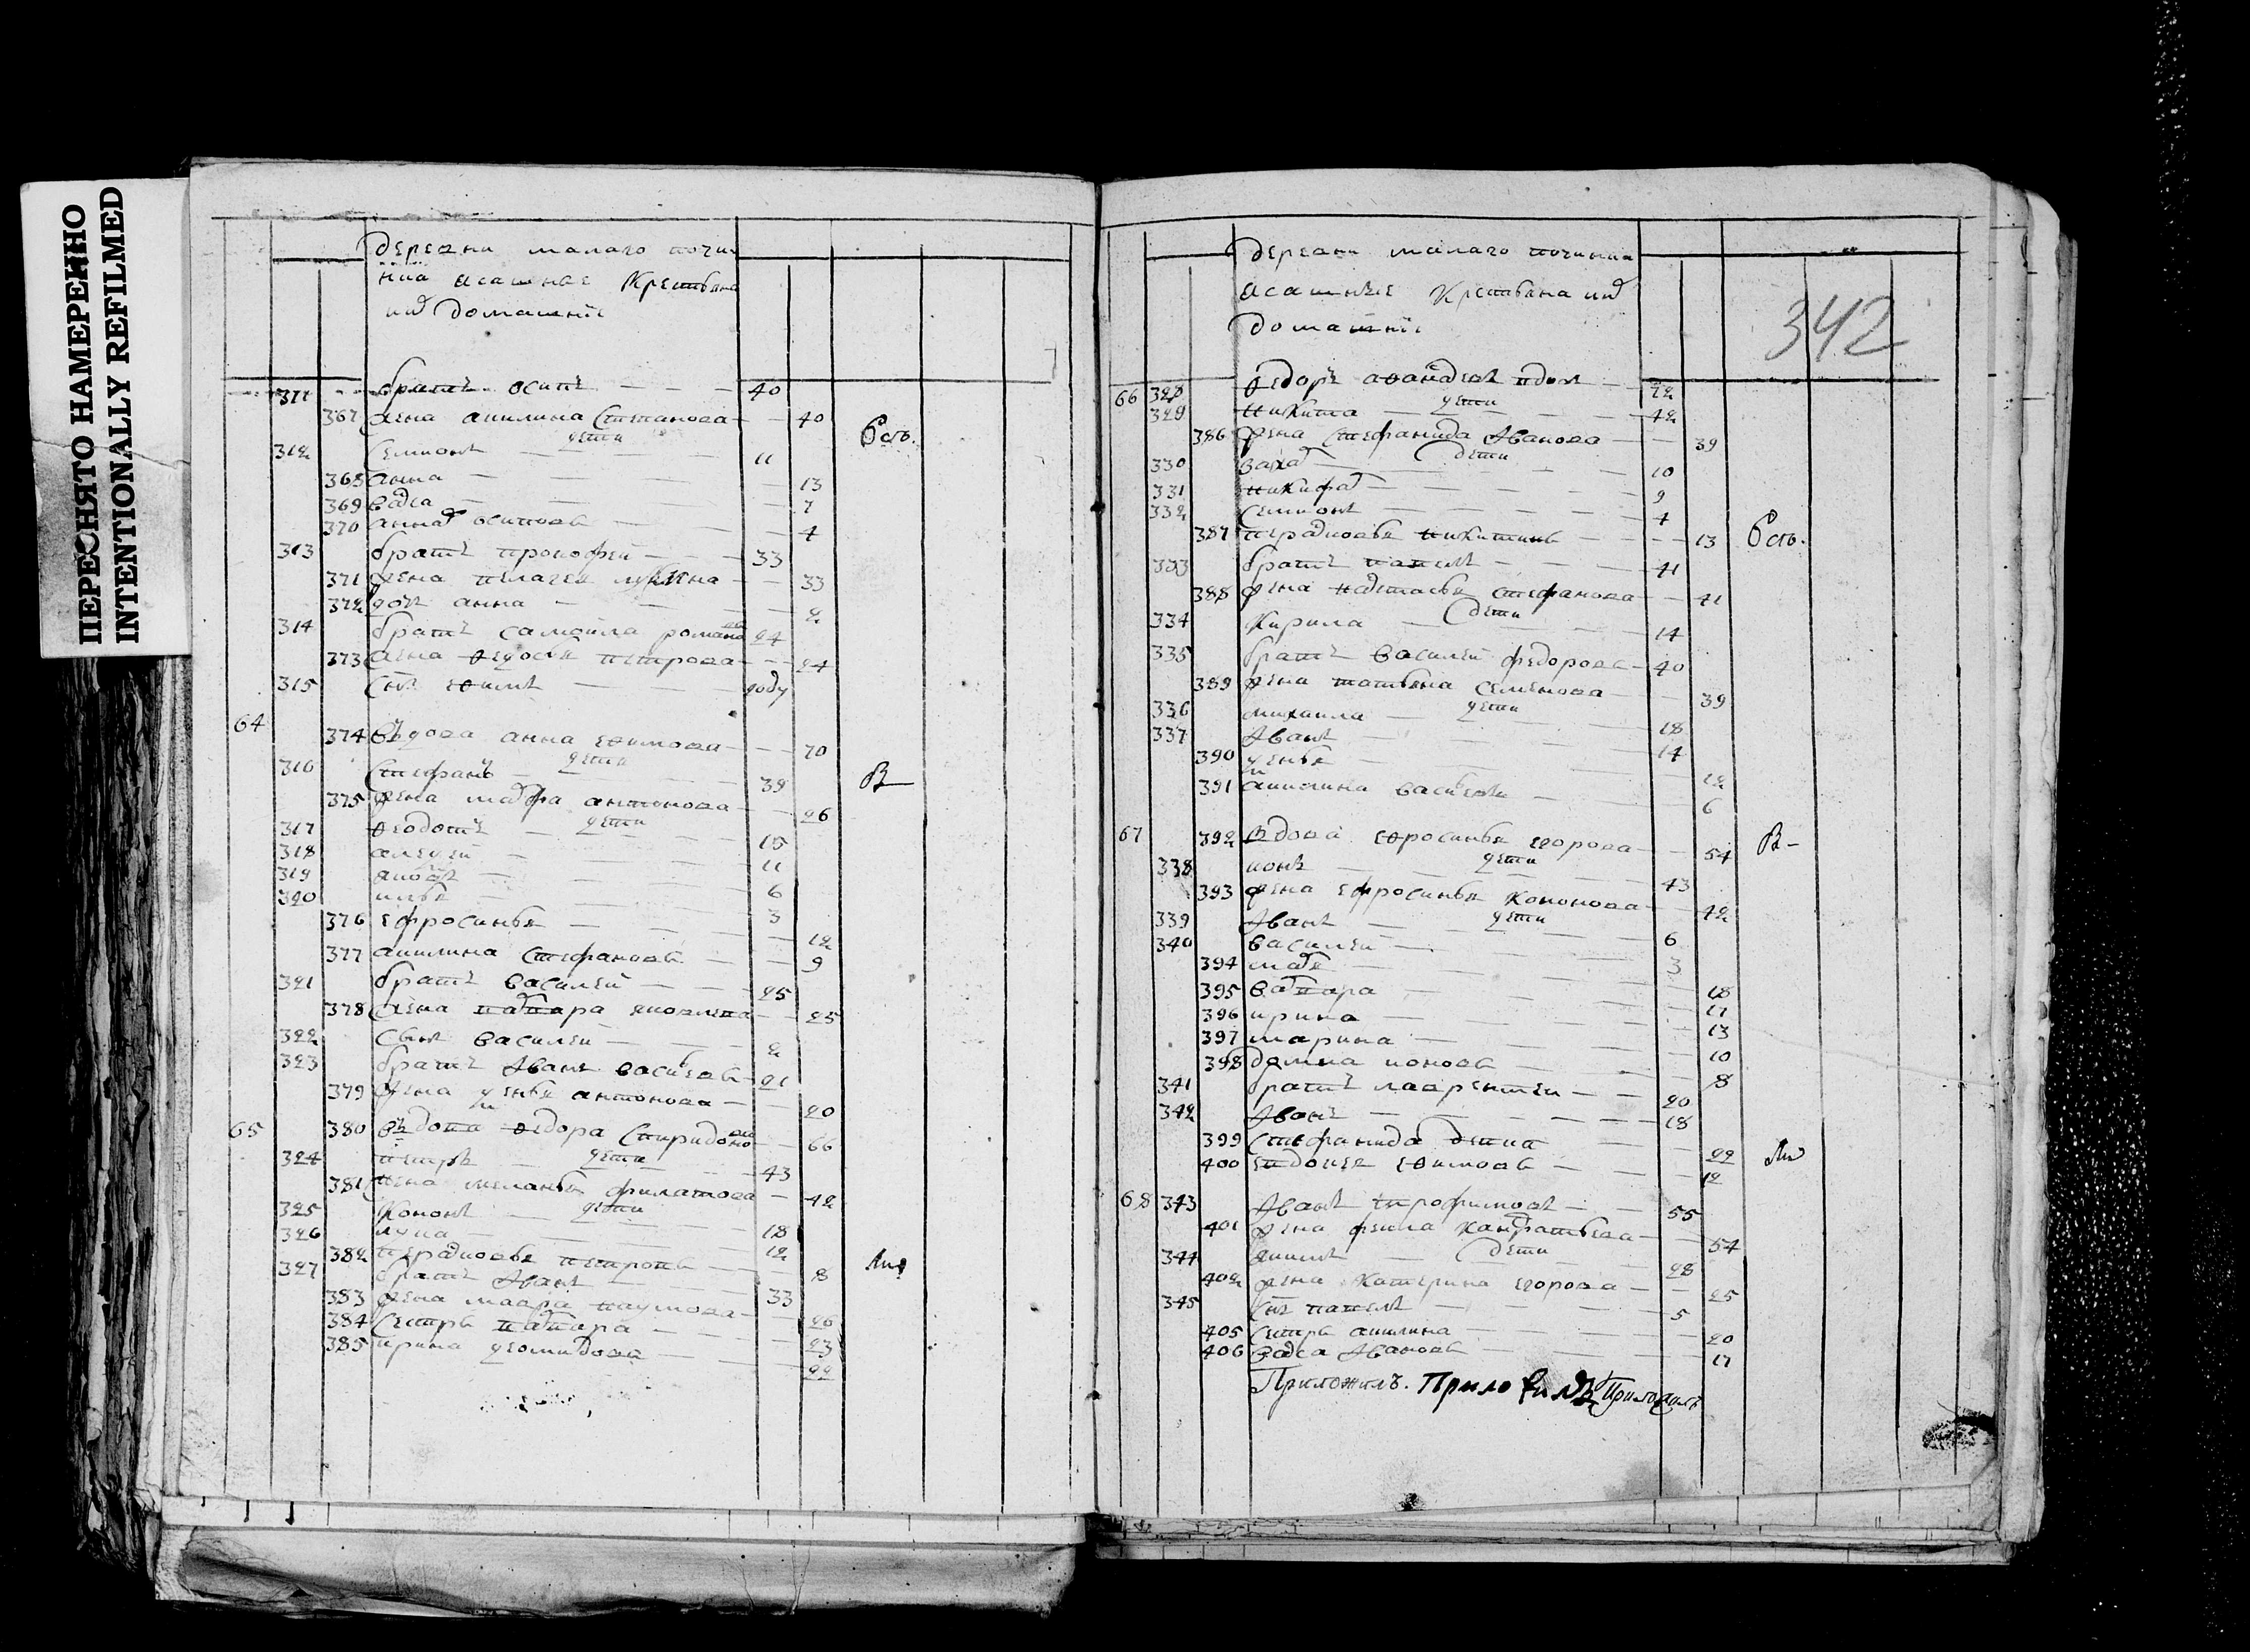 ПЕРЕСНЯТО НАМЕРЕННО
INTENTIONALLY REFILMED
деревни малаго почи
нка ясашные крестьяна
их домашнїе
311 братъ осипъ 40
367 жена акилина степанова 40
Есть.
дети
312 семионъ 11
368 анна 13
369 васса 7
370 анна осиповы 4
313 братъ прокофей 33
371 жена пелагея 33
372 дочь анна 2
314 братъ самойла романов 24
373 жена ѳедосья петрова 24
315 сынъ ефимъ году
64 374 въдова анна ефимова 70
дети
316 стефанъ 39 В
375 жена марфа антонова 26
317 ѳеодотъ дети 15
318 алексей 11
319 яковъ 6
320 илья 3
376 ефросинья 12
377 акилина стефановы 9
321 братъ василей 25
378 жена варвара яковлева 25
322 сынъ василей 2
323 братъ иванъ васильевъ 21
379 жена ксенья антонова 20
65 380 въдова ѳедора спиридонова 66
324 петръ дети 43
381 жена меланья филатова 42
325 кононъ дети 18
326 лука 12
382 парасковья петровы 8
327 братъ иванъ 33
383 жена мавра наумова 26
384 сестры варвара 23
385 ирина 22
деревни малаго починка
ясашные крестьяна их
домашнїе
342
66 328 ѳедоръ аѳанасьевъ вдов 72
329 никита дети 42
386 жена стефанида иванова 39
330 захар дети 10
331 никифор 9
332 семионъ 4
387 парасковья никитины 13 Есть.
333 братъ павелъ 41
388 жена настасья стефанова 41
334 кирила дети 14
335 братъ василей федоровъ 40
389 жена татьяна семенова 39
336 михаила дети 18
337 иванъ 14
390 ксенья 12
391 акилина васильевы 6
67 392 вдова ефросинья егорова 54 В
338 ионъ дети 43
393 жена ефросинья кононова 42
339 иванъ дети 6
340 василей 3
394 марья 18
395 варвара 17
396 ирина 13
397 марина 10
398 домна ионовы 8
341 братъ лаврентей 20
342 иванъ 18
399 стефанида девка 22
400 евдокея ефимовы 12
68 343 иванъ трофимовъ 55
401 жена фекла кандратьева 54
344 якимъ дети 28
402 жена катерина егорова 25
345 сынъ павелъ 5
405 сестры акилина 20
406 васса ивановы 17
Приложилъ. Приложилъ Приложилъ